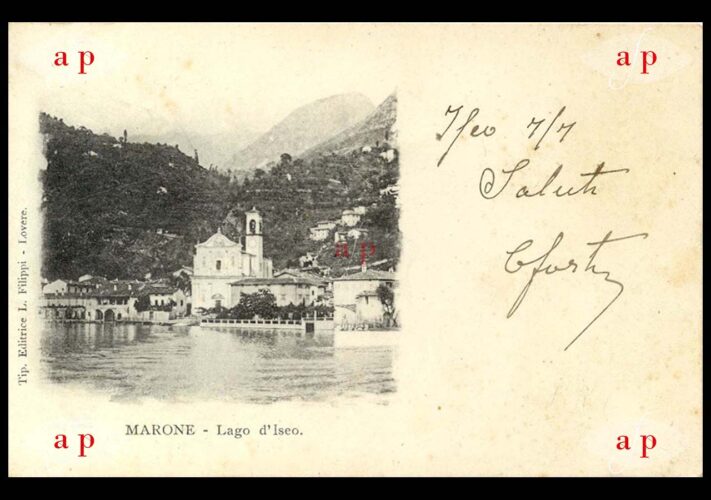 a p
a p
Iseo 7/7
Saluti
a p
Tip. Editrice L. Filippi - Lovere.
MARONE - Lago d'Iseo.
a p
a p